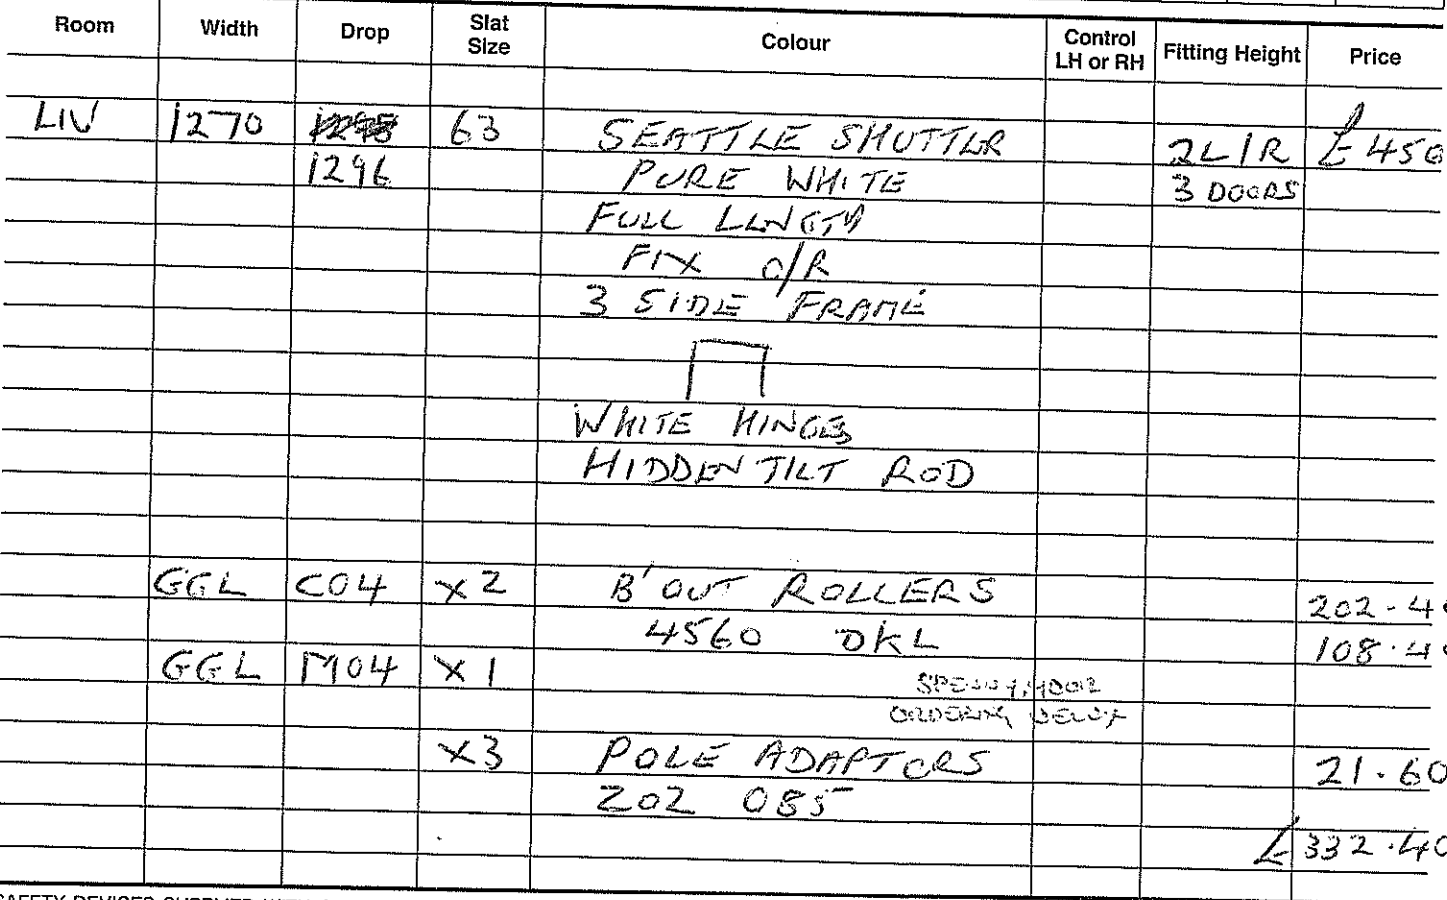 Room Width Drop Slat Size Colour Control LH or RH Fitting Height Price
LIV 1270 63 SEATTLE SHUTTER 2L1R £456
1296 PURE WHITE 3 DOORS
FULL LENGTH
FIX O/R
3 SIDE FRAME
WHITE HINGES
HIDDEN TILT ROD
GGL C04 x2 B'OUT ROLLERS 202.40
4560 DKL 108.40
GGL M04 x1
ORDERING
x3 POLE ADAPTORS 21.60
ZOZ 085
£332.40